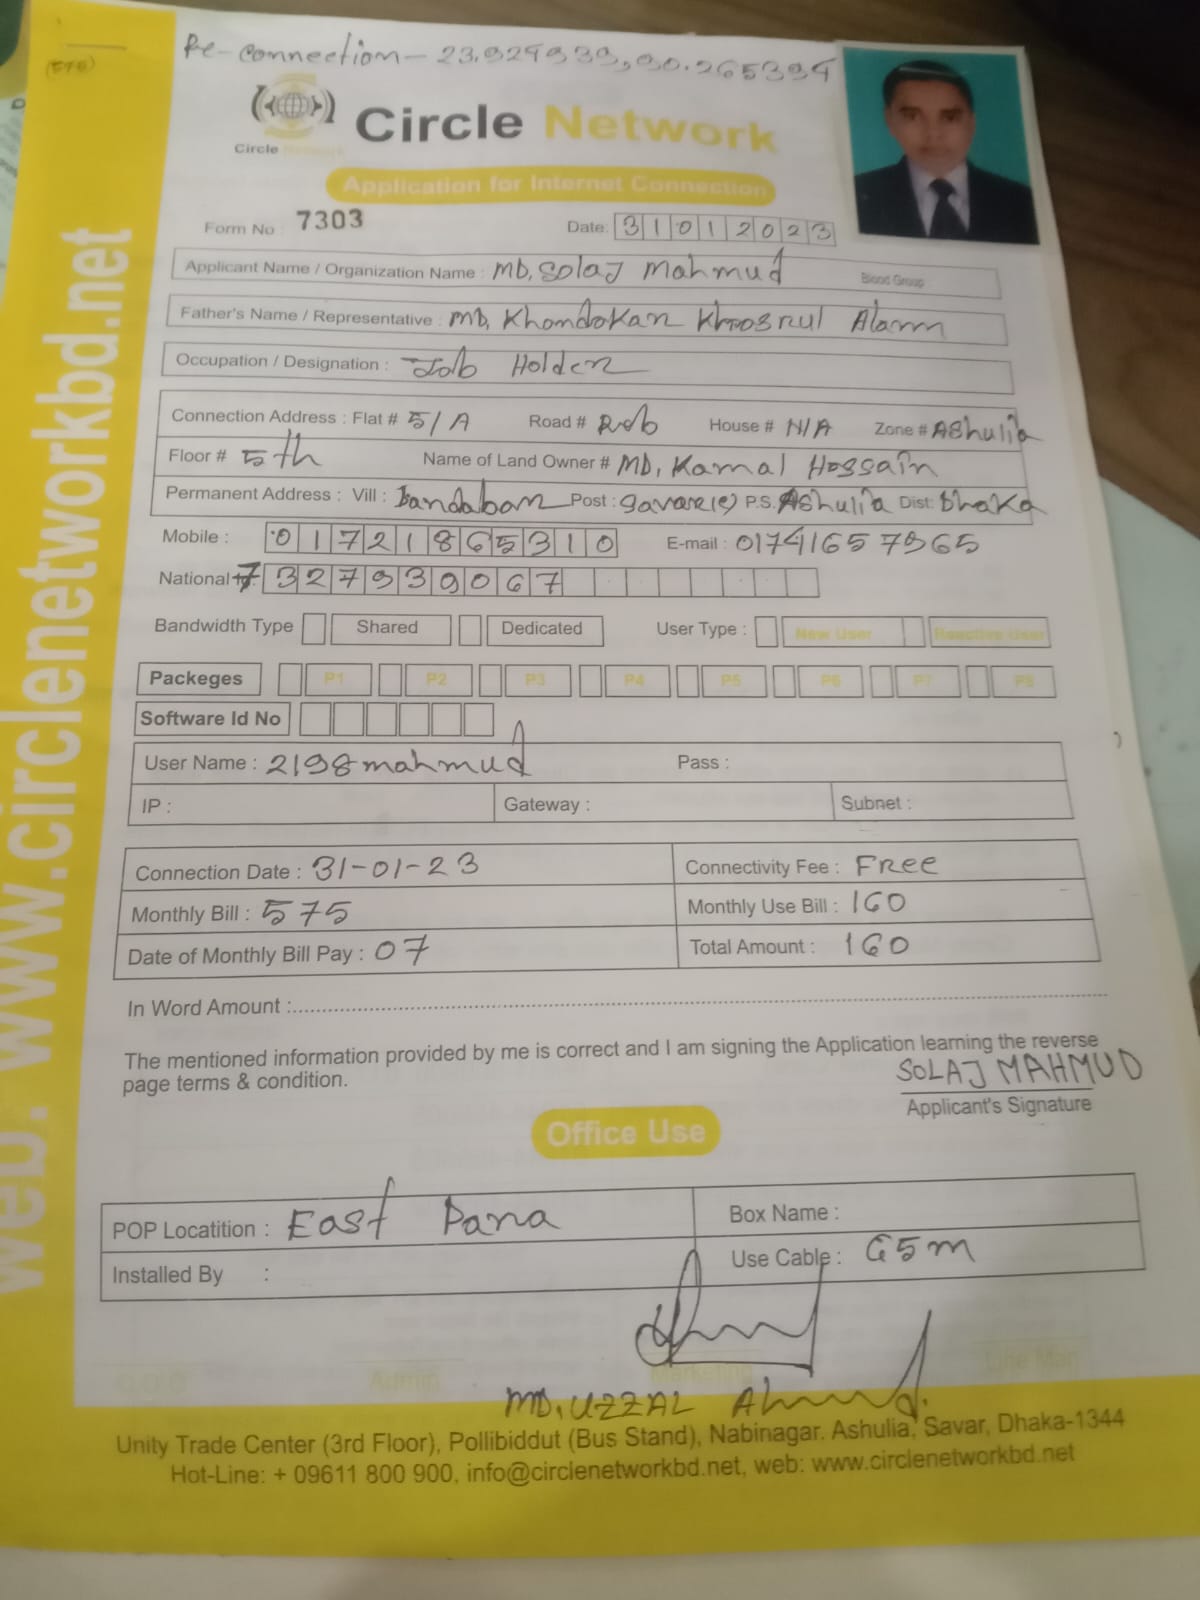 Re-connection - 23.924939, 90.265394
(575)
Circle Network
Circle Network
Application for Internet Connection
Form No : 7303
Date: 31012023
Applicant Name / Organization Name : MD, Solaj Mahmud Blood Group
Father's Name / Representative : MD, Khondokar Alam
Occupation / Designation : Job Holder
Connection Address : Flat # 5/A Road # Rob House # N/A Zone # Ashulia
Floor # 5th Name of Land Owner # MD, Kamal Hossain
Permanent Address : Vill : Post : P.S. Ashulia Dist: Dhaka
Mobile : 01721865310 E-mail : 01741657965
National 7327939067
Bandwidth Type Shared Dedicated User Type : New User Reactive User
Packeges P1 P2 P3 P4 P5 P6 P7 P8
Software Id No
User Name : 2198mahmud Pass :
IP : Gateway : Subnet :
Connection Date : 31-01-23 Connectivity Fee : FREE
Monthly Bill : 575 Monthly Use Bill : 160
Date of Monthly Bill Pay : 07 Total Amount : 160
In Word Amount :
The mentioned information provided by me is correct and I am signing the Application learning the reverse
page terms & condition.
SOLAJ MAHMUD
Applicant's Signature
Office Use
POP Locatition : East Para Box Name :
Installed By : Use Cable : 65m
Admin Marketing Line Man
MD, UZZAL Ahmed.
Unity Trade Center (3rd Floor), Pollibiddut (Bus Stand), Nabinagar. Ashulia, Savar, Dhaka-1344
Hot-Line: + 09611 800 900, info@circlenetworkbd.net, web: www.circlenetworkbd.net
web: www.circlenetworkbd.net